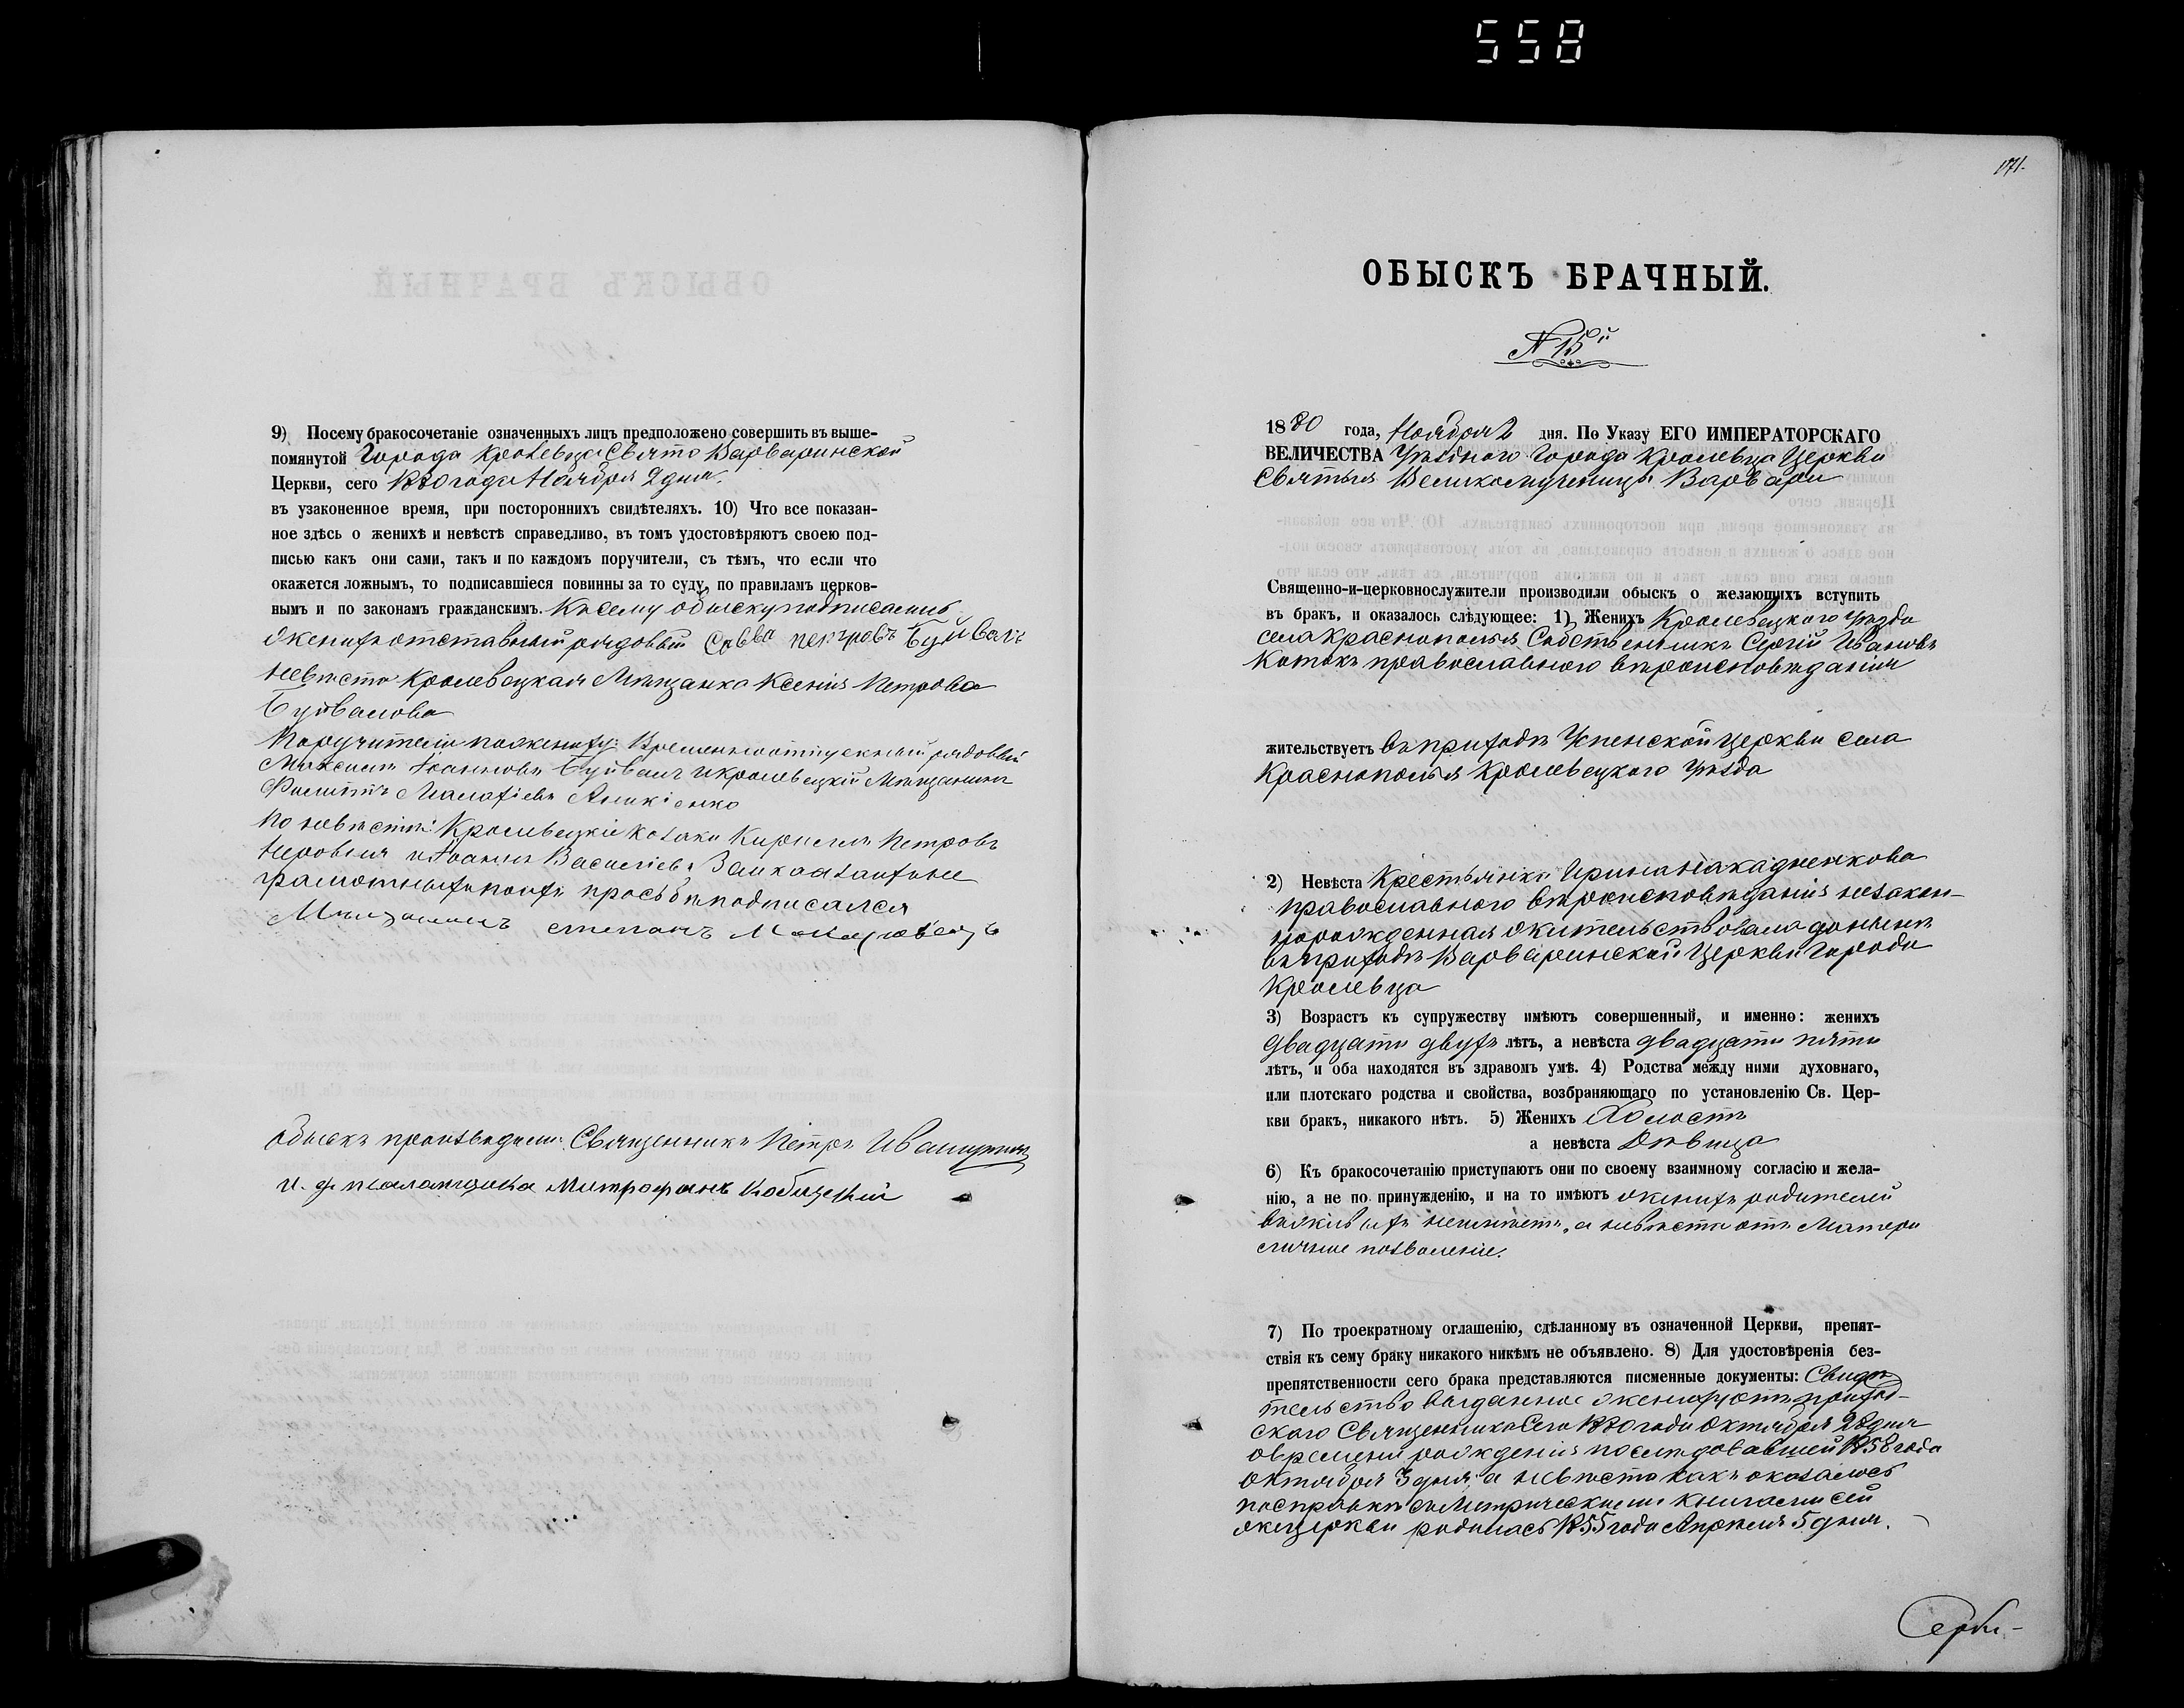 558
9) Посему бракосочетаніе означенныхъ лицъ предположено совершить въ выше-
помянутой Города Кролевца Свято Варваринской
Церкви, сего 1880 года Ноября 2 дня.
въ узаконенное время, при постороннихъ свидѣтеляхъ. 10) Что все показан-
ное здѣсь о женихѣ и невѣстѣ справедливо, въ томъ удостовѣряютъ своею под-
писью какъ они сами, такъ и по каждомъ поручители, съ тѣмъ, что если что
окажется ложнымъ, то подписавшіеся повинны за то суду, по правиламъ церков-
нымъ и по законамъ гражданскимъ. Къ сему обыску подписались
женихъ отставный рядовый Савва Петровъ Буйвалъ
невѣста Кролевецкая Мѣщанка Ксенія Петрова
Буйвалова
Поручители по женихѣ: Временноотпускный рядовый
Максимъ Іоанновъ Буйвалъ и кролевецкій Мѣщанинъ
Филиппъ Малафіевъ Аникіенко
По невѣстѣ: Кролевецкіе козаки Кириллъ Петровъ
и Іоаннъ Василіевъ Заика а за ихъ не
грамотныхъ по ихъ просьбѣ подписался
Мѣщанинъ степанъ
Обыскъ производили: Священникъ Петръ
и. д. псаломщика Митрофанъ Кобыщкій
171.
ОБЫСКЪ БРАЧНЫЙ.
N 15ый
1880 года, Ноября 2 дня. По Указу ЕГО ИМПЕРАТОРСКАГО
ВЕЛИЧЕСТВА Уѣзднаго Города Кролевца Церкви
Святыя Великомученицы Варвары
Священно-и-церковнослужители производили обыскъ о желающихъ вступить
въ бракъ, и оказалось слѣдующее: 1) Женихъ Кролевецкаго Уѣзда
села Краснополья Собственникъ Сергій Ивановъ
Котокъ православного вѣроисповѣданія
жительствуетъ въ приходѣ Успенской Церкви села
Краснополья Кролевецкого Уѣзда
2) Невѣста Крестьянка Ирина Накадненкова
православного вѣроисповѣданія незакон-
норожденная жительствовала донынѣ
въ приходѣ Варваринской Церкви Города
Кролевца
3) Возрастъ къ супружеству имѣютъ совершенный, и именно: женихъ
двадцати двухъ лѣтъ, а невѣста двадцати пяти
лѣтъ, и оба находятся въ здравомъ умѣ. 4) Родства между ними духовнаго,
или плотскаго родства и свойства, возбраняющаго по установленію Св. Цер-
кви бракъ, никакого нѣтъ. 5) Женихъ Холостъ
а невѣста Дѣвица
6) Къ бракосочетанію приступаютъ они по своему взаимному согласію и жела-
нію, а не по принужденію, и на то имѣютъ женихъ родителей
въ живыхъ неимѣетъ, а невѣста отъ Матери
личное позволеніе.
7) По троекратному оглашенію, сдѣланному въ означенной Церкви, препят-
ствія къ сему браку никакого никѣмъ не объявлено. 8) Для удостовѣренія без-
препятственности сего брака представляются писменные документы: Свидѣ-
тельство выданное жениху отъ приход-
скаго Священника Сего 1880 года Октября 28 дня
о времени рожденія послѣдовавшей 1858 года
Октября 3 дня, а невѣста какъ оказалось
по справкѣ съ Метрическими книгами сей
же церкви родилась 1855 года Апрѣля 5 дня.